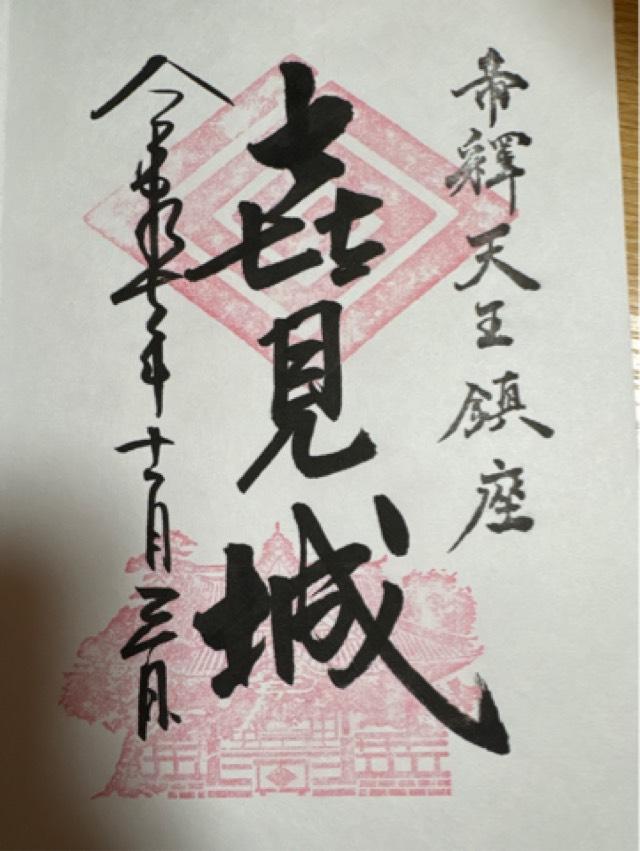 帝釋天王鎮座
㐂見城
令和七年十一月三日